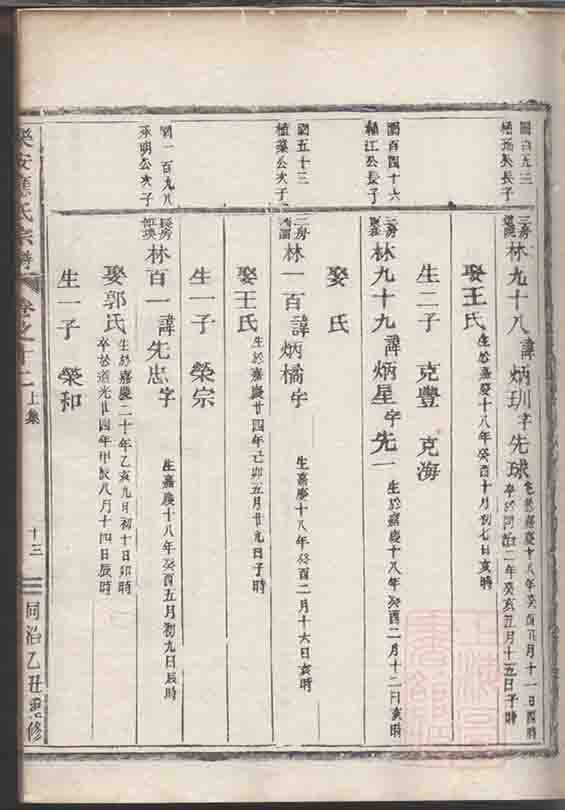 圖百五三
長子
三房
林九十八諱炳玔字先球
生於嘉慶十八年癸酉五月十一日酉時
卒於同治二年癸亥五月十五日子時
娶王氏
生於嘉慶十八年癸酉十月初七日亥時
生二子 克豐 克海
圖百四十六
江公長子
三房
林九十九諱炳星字先一
生於嘉慶十八年癸酉二月十二日亥時
娶 氏
圖五十三
植藻公次子
三房
林一百諱炳橘字
生嘉慶十八年癸酉二月十六日亥時
娶王氏
生於嘉慶廿四年己卯五月廿九日子時
生一子 榮宗
圖一百九八
承明公次子
林百一諱先忠字
生嘉慶十八年癸酉五月初九日辰時
娶郭氏
生於嘉慶二十年乙亥九月初十日卯時
卒於道光廿四年甲辰八月十四日辰時
生一子 榮和
樂安 氏宗譜
卷之十二
上集
十三
同治乙丑重修